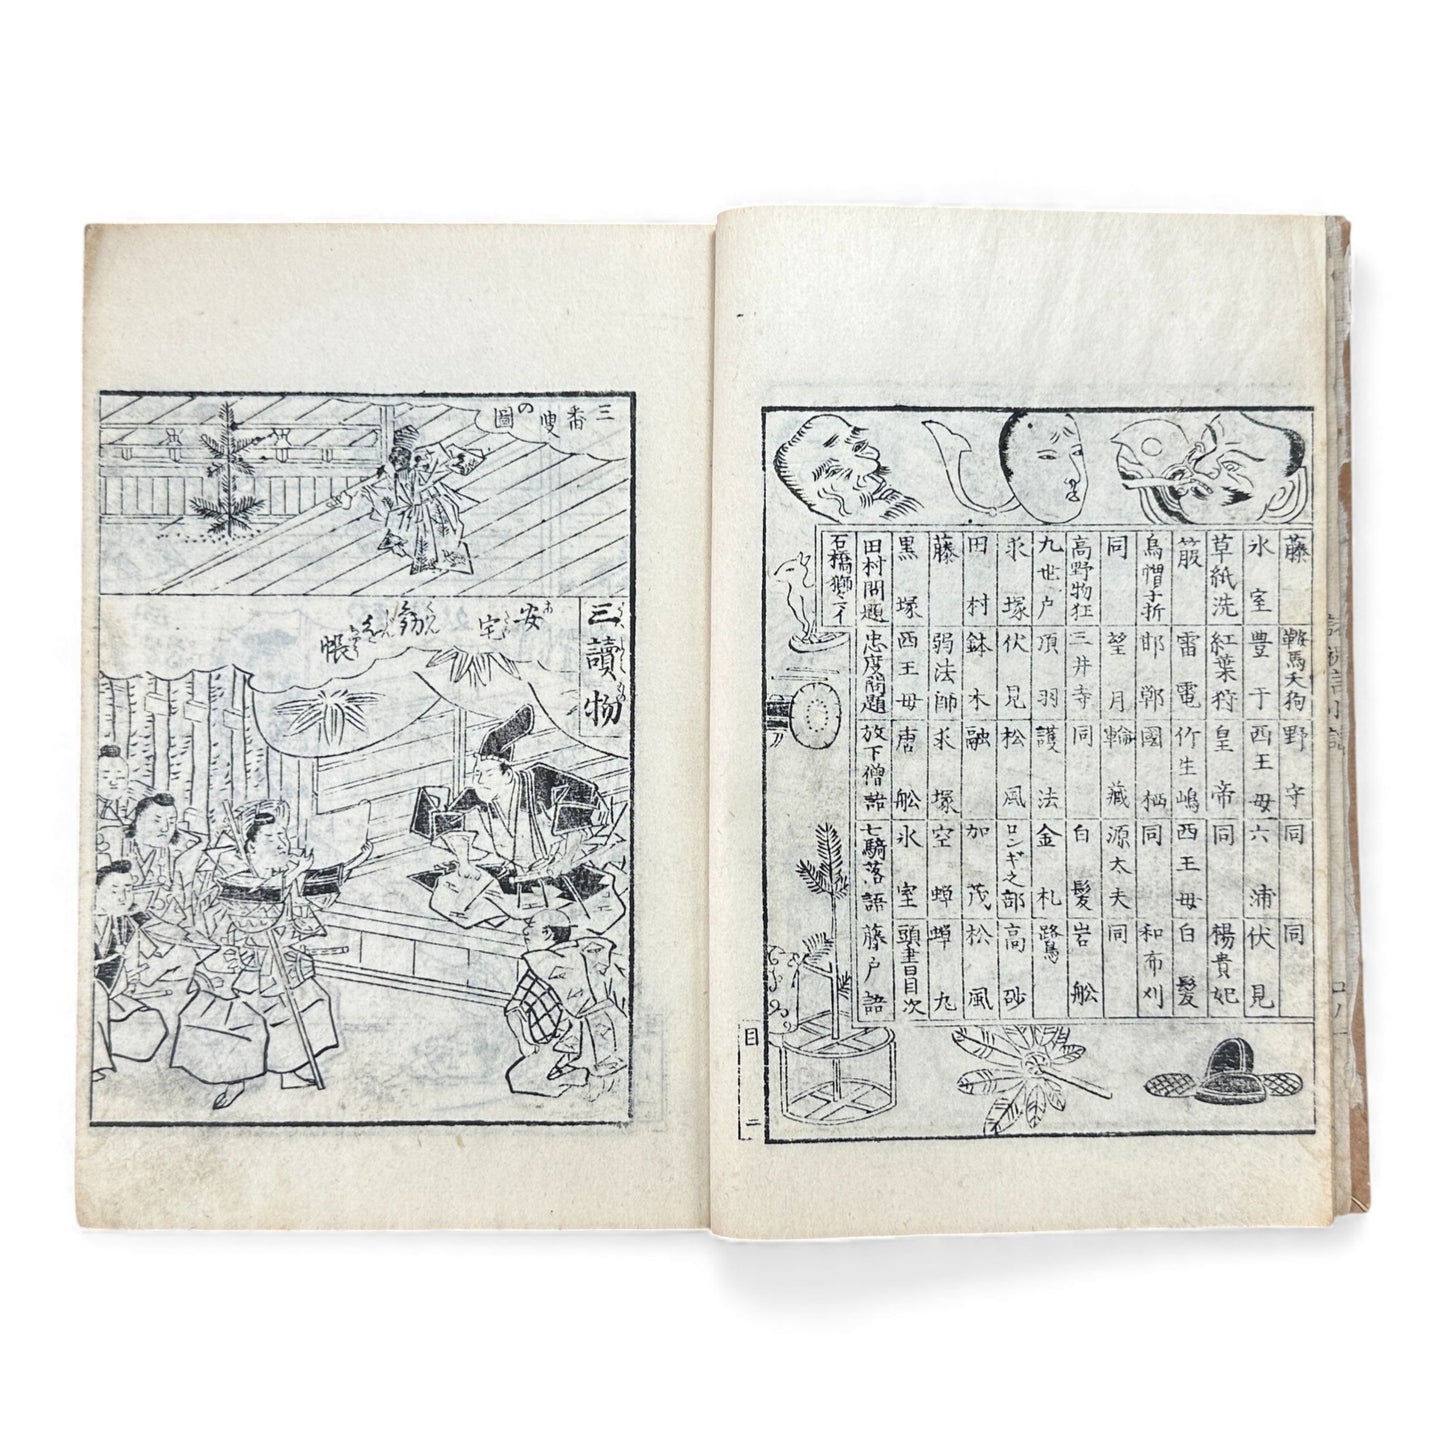 藤　鞍馬天狗　野守　同　同
氷室　豊于　西王母　六浦　伏見
草紙洗　紅葉狩　皇帝　同　楊貴妃
箙　雷電　竹生嶋　西王母　白髮
烏帽子折　邯鄲　國栖　同　和布刈
同　望月　輪藏　源太夫　同
高野物狂　三井寺　同　白髮　岩舩
九世戸　項羽　護法　金札　鷺
求塚　伏見　松風　ロンギ之部　高砂
田村　鉢木　融　加茂　松風
藤　弱法師　求塚　空蝉　蝉丸
黒塚　西王母　唐舩　氷室　頭書目次
田村問題　忠度問題　放下僧語　七騎落語　藤戸語
石橋獅々
目　二
三番叟の圖
三讀物
安宅勧進帳